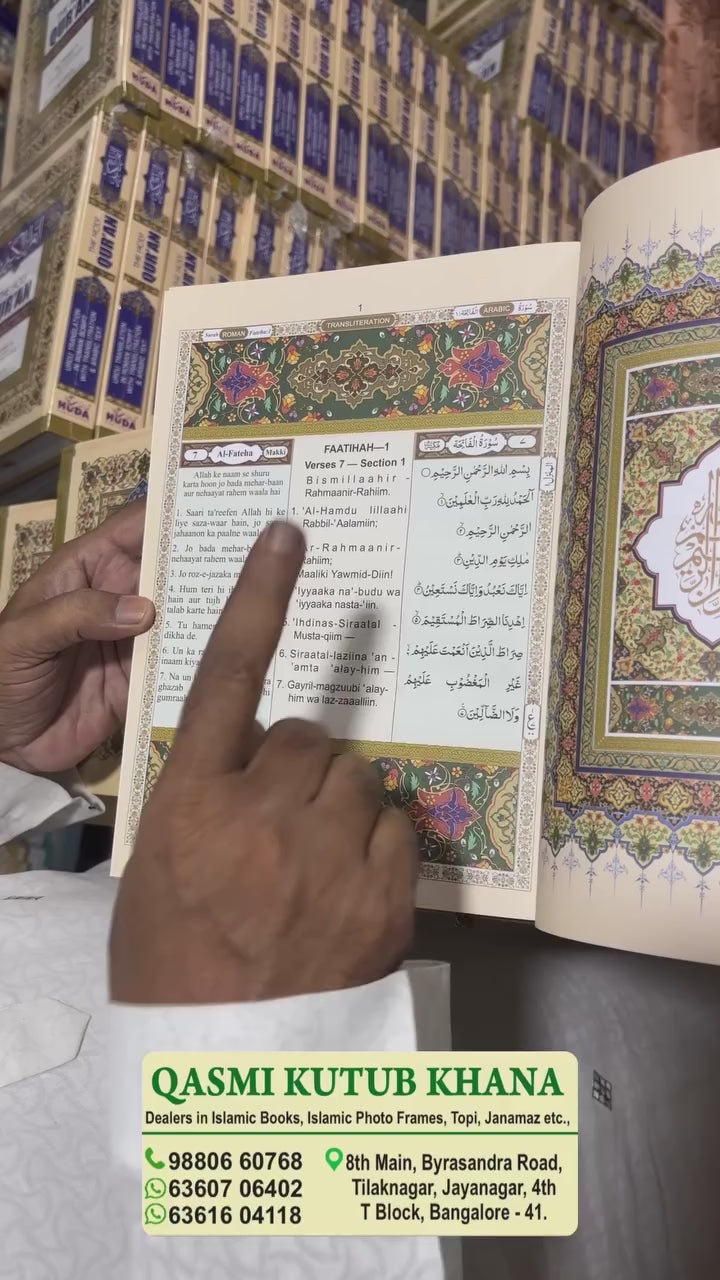 QUR'AN
HUDA
HUDA
HUDA
HUDA
HUDA
HUDA
THE HOLY QUR'AN
THE HOLY QUR'AN
WITH TRANSLATION
IN ROMAN SCRIPT
& ARABIC TEXT
HUDA
HUDA
1
Surah ROMAN Fateha:1
TRANSLITERATION
ARABIC سُوْرَةُ
7 Al-Fateha Makki
Allah ke naam se shuru
karta hoon jo bada mehar-baan
aur nehaayat rahem waala hai
1. Saari ta'reefen Allah hi ke
liye saza-waar hain, jo
jahaanon ka paalne
2. Jo bada mehar-
nehaayat rahem
3. Jo roz-e-jazaka
4. Hum teri hi
hain aur tujh
talab karte hain
5. Tu hame
dikha de.
6. Un ka
inaam
7. Na un
ghazab
FAATIHAH—1
Verses 7 — Section 1
Bismillaahir -
Rahmaanir-Rahiim.
1. 'Al-Hamdu lillaahi
Rabbil-'Aalamiin;
Ar-Rahmaanir-
Rahiim;
Maaliki Yawmid-Diin!
'Iyyaaka na'-budu wa
'iyyaaka nasta-'iin.
5. 'Ihdinas-Siraatal -
Musta-qiim —
6. Siraatal-laziina 'an -
'amta 'alay-him —
7. Gayril-magzuubi 'alay-
him wa laz-zaaalliin.
٧ سُوْرَةُ الْفَاتِحَةِ
بِسْمِ اللهِ الرَّحْمٰنِ الرَّحِيْمِ
اَلْحَمْدُ لِلّٰهِ رَبِّ الْعٰلَمِيْنَ ۙ۱
الرَّحْمٰنِ الرَّحِيْمِ ۙ۲
مٰلِكِ يَوْمِ الدِّيْنِ ۳
اِيَّاكَ نَعْبُدُ وَاِيَّاكَ نَسْتَعِيْنُ ۴
اِهْدِنَا الصِّرَاطَ الْمُسْتَقِيْمَ ۵
صِرَاطَ الَّذِيْنَ اَنْعَمْتَ عَلَيْهِمْ
غَيْرِ الْمَغْضُوْبِ عَلَيْهِمْ
وَلَا الضَّآلِّيْنَ
QASMI KUTUB KHANA
Dealers in Islamic Books, Islamic Photo Frames, Topi, Janamaz etc.,
98806 60768
63607 06402
63616 04118
8th Main, Byrasandra Road,
Tilaknagar, Jayanagar, 4th
T Block, Bangalore - 41.